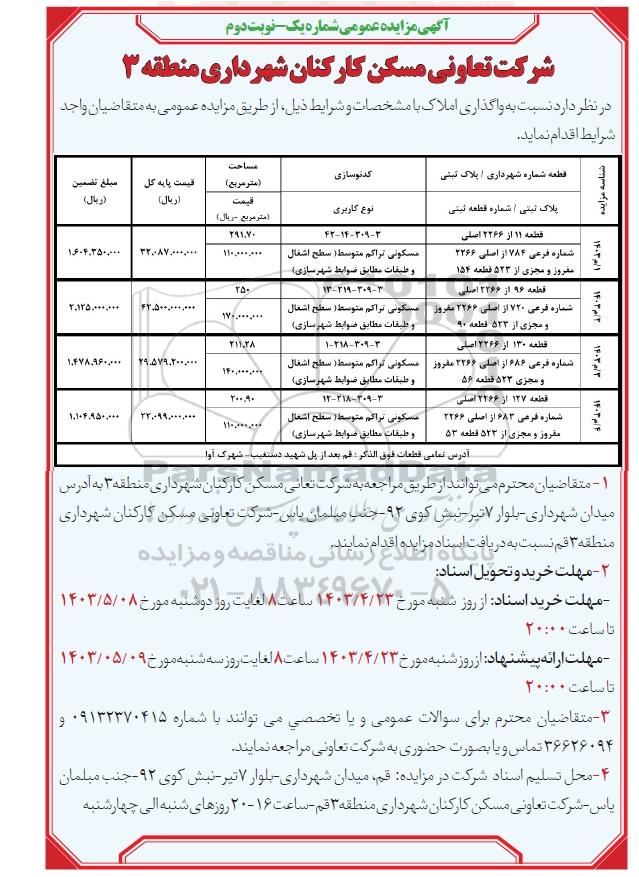 آگهی مزایده عمومی شماره یک-نوبت دوم
شرکت تعاونی مسکن کارکنان شهرداری منطقه ۳
در نظر دارد نسبت به واگذاری املاک با مشخصات و شرایط ذیل، از طریق مزایده عمومی به متقاضیان واجد
شرایط اقدام نماید.
شناسه مزایده
قطعه شماره شهرداری / پلاک ثبتی
کدنوسازی
مساحت
(مترمربع)
قیمت پایه کل
(ریال)
مبلغ تضمین
(ریال)
پلاک ثبتی / شماره قطعه ثبتی
نوع کاربری
قیمت
(مترمربع -ریال)
قطعه ۱۱ از ۲۲۶۶ اصلی
۳-۳۰۹-۱۴-۴۲
۲۹۱.۷۰
۳۲.۰۸۷.۰۰۰.۰۰۰
۱.۶۰۴.۳۵۰.۰۰۰
شماره فرعی ۷۸۴ از اصلی ۲۲۶۶
مفروز و مجزی از ۵۲۳ قطعه ۱۵۴
مسکونی تراکم متوسط( سطح اشغال
و طبقات مطابق ضوابط شهرسازی)
۱۱۰.۰۰۰.۰۰۰
قطعه ۹۶ از ۲۲۶۶ اصلی
۳-۳۰۹-۲۱۹-۱۳
۲۵۰
۴۲.۵۰۰.۰۰۰.۰۰۰
۲.۱۲۵.۰۰۰.۰۰۰
شماره فرعی ۷۲۰ از اصلی ۲۲۶۶ مفروز
و مجزی از ۵۲۳ قطعه ۹۰
مسکونی تراکم متوسط( سطح اشغال
و طبقات مطابق ضوابط شهرسازی)
۱۷۰.۰۰۰.۰۰۰
قطعه ۱۳۰ از ۲۲۶۶ اصلی
۳-۳۰۹-۲۱۸-۱
۲۱۱.۲۸
۲۹.۵۷۹.۲۰۰.۰۰۰
۱.۴۷۸.۹۶۰.۰۰۰
شماره فرعی ۶۸۶ از اصلی ۲۲۶۶ مفروز
و مجزی ۵۲۳ قطعه ۵۶
مسکونی تراکم متوسط( سطح اشغال
و طبقات مطابق ضوابط شهرسازی)
۱۴۰.۰۰۰.۰۰۰
قطعه ۱۲۷ از ۲۲۶۶ اصلی
۳-۳۰۹-۲۱۸-۱۲
۲۰۰.۹۰
۲۲.۰۹۹.۰۰۰.۰۰۰
۱.۱۰۴.۹۵۰.۰۰۰
شماره فرعی ۶۸۳ از اصلی ۲۲۶۶
مفروز و مجزی از ۵۲۳ قطعه ۵۳
مسکونی تراکم متوسط( سطح اشغال
و طبقات مطابق ضوابط شهرسازی)
۱۱۰.۰۰۰.۰۰۰
آدرس تمامی قطعات فوق الذکر : قم بعد از پل شهید دستغیب- شهرک آوا
ParsNamadData
پایگاه اطلاع رسانی مناقصه و مزایده
۰۲۱-۸۸۳۴۹۶۷۰-۵
۱- متقاضیان محترم می توانند از طریق مراجعه به شرکت تعانی مسکن کارکنان شهرداری منطقه۳ به آدرس
میدان شهرداری-بلوار ۷تیر-نبش کوی ۹۲-جنب مبلمان یاس-شرکت تعاونی مسکن کارکنان شهرداری
منطقه۳قم نسبت به دریافت اسناد مزایده اقدام نمایند.
۲-مهلت خرید و تحویل اسناد:
-مهلت خرید اسناد: از روز شنبه مورخ ۱۴۰۳/۴/۲۳ ساعت۸ لغایت روز دوشنبه مورخ ۱۴۰۳/۵/۰۸
تا ساعت ۲۰:۰۰
-مهلت ارائه پیشنهاد: از روز شنبه مورخ ۱۴۰۳/۴/۲۳ ساعت۸ لغایت روز سه شنبه مورخ ۱۴۰۳/۰۵/۰۹
تا ساعت ۲۰:۰۰
۳-متقاضیان محترم برای سوالات عمومی و یا تخصصي می توانند با شماره ۰۹۱۳۲۳۷۰۴۱۵ و
۳۶۶۲۶۰۹۴ تماس و یا بصورت حضوری به شرکت تعاونی مراجعه نمایند.
۴-محل تسلیم اسناد شرکت در مزایده: قم، میدان شهرداری-بلوار ۷تیر-نبش کوی ۹۲-جنب مبلمان
یاس-شرکت تعاونی مسکن کارکنان شهرداری منطقه۳قم-ساعت۱۶-۲۰ روزهای شنبه الی چهارشنبه